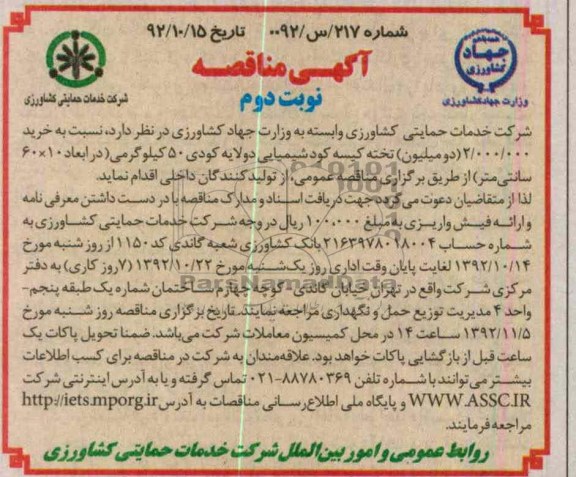 شماره ۲۱۷/س/۰۰۹۲ تاریخ ۹۲/۱۰/۱۵
جهاد
کشاورزی
وزارت جهادکشاورزی
آگهی مناقصه
نوبت دوم
شرکت خدمات حمایتی کشاورزی
شرکت خدمات حمایتی کشاورزی وابسته به وزارت جهاد کشاورزی در نظر دارد، نسبت به خرید
۲/۰۰۰/۰۰۰ (دو میلیون) تخته کیسه کود شیمیایی دولایه کودی ۵۰ کیلوگرمی( در ابعاد ۱۰×۶۰
سانتی‌متر) از طریق برگزاری مناقصه عمومی، از تولیدکنندگان داخلی اقدام نماید.
لذا از متقاضیان دعوت می‌گردد، جهت دریافت اسناد و مدارک مناقصه با در دست داشتن معرفی نامه
و ارائه فیش واریزی به مبلغ ۱۰۰،۰۰۰ ریال در وجه شرکت خدمات حمایتی کشاورزی به
شماره حساب ۲۱۶۳۹۷۸۰۱۸۰۰۴ بانک کشاورزی شعبه گاندی کد ۱۱۵۰ از روز شنبه مورخ
۱۳۹۲/۱۰/۱۴ لغایت پایان وقت اداری روز یک‌شنبه مورخ ۱۳۹۲/۱۰/۲۲ (۷ روز کاری) به دفتر
مرکزی شرکت واقع در تهران خیابان گاندی - کوچه چهارم ساختمان شماره یک طبقه پنجم-
واحد ۴ مدیریت توزیع حمل و نگهداری مراجعه نمایند. تاریخ برگزاری مناقصه روز شنبه مورخ
۱۳۹۲/۱۱/۵ ساعت ۱۴ در محل کمیسیون معاملات شرکت می‌باشد. ضمنا تحویل پاکات یک
ساعت قبل از بازگشایی پاکات خواهد بود. علاقه‌مندان به شرکت در مناقصه برای کسب اطلاعات
بیشتر می‌توانند با شماره تلفن ۸۸۷۸۰۳۶۹-۰۲۱ تماس گرفته و یا به آدرس اینترنتی شرکت
WWW.ASSC.IR و پایگاه ملی اطلاع‌رسانی مناقصات به آدرس http://iets.mporg.ir
مراجعه فرمایند.
روابط عمومی و امور بین‌الملل شرکت خدمات حمایتی کشاورزی
ParsNamadData